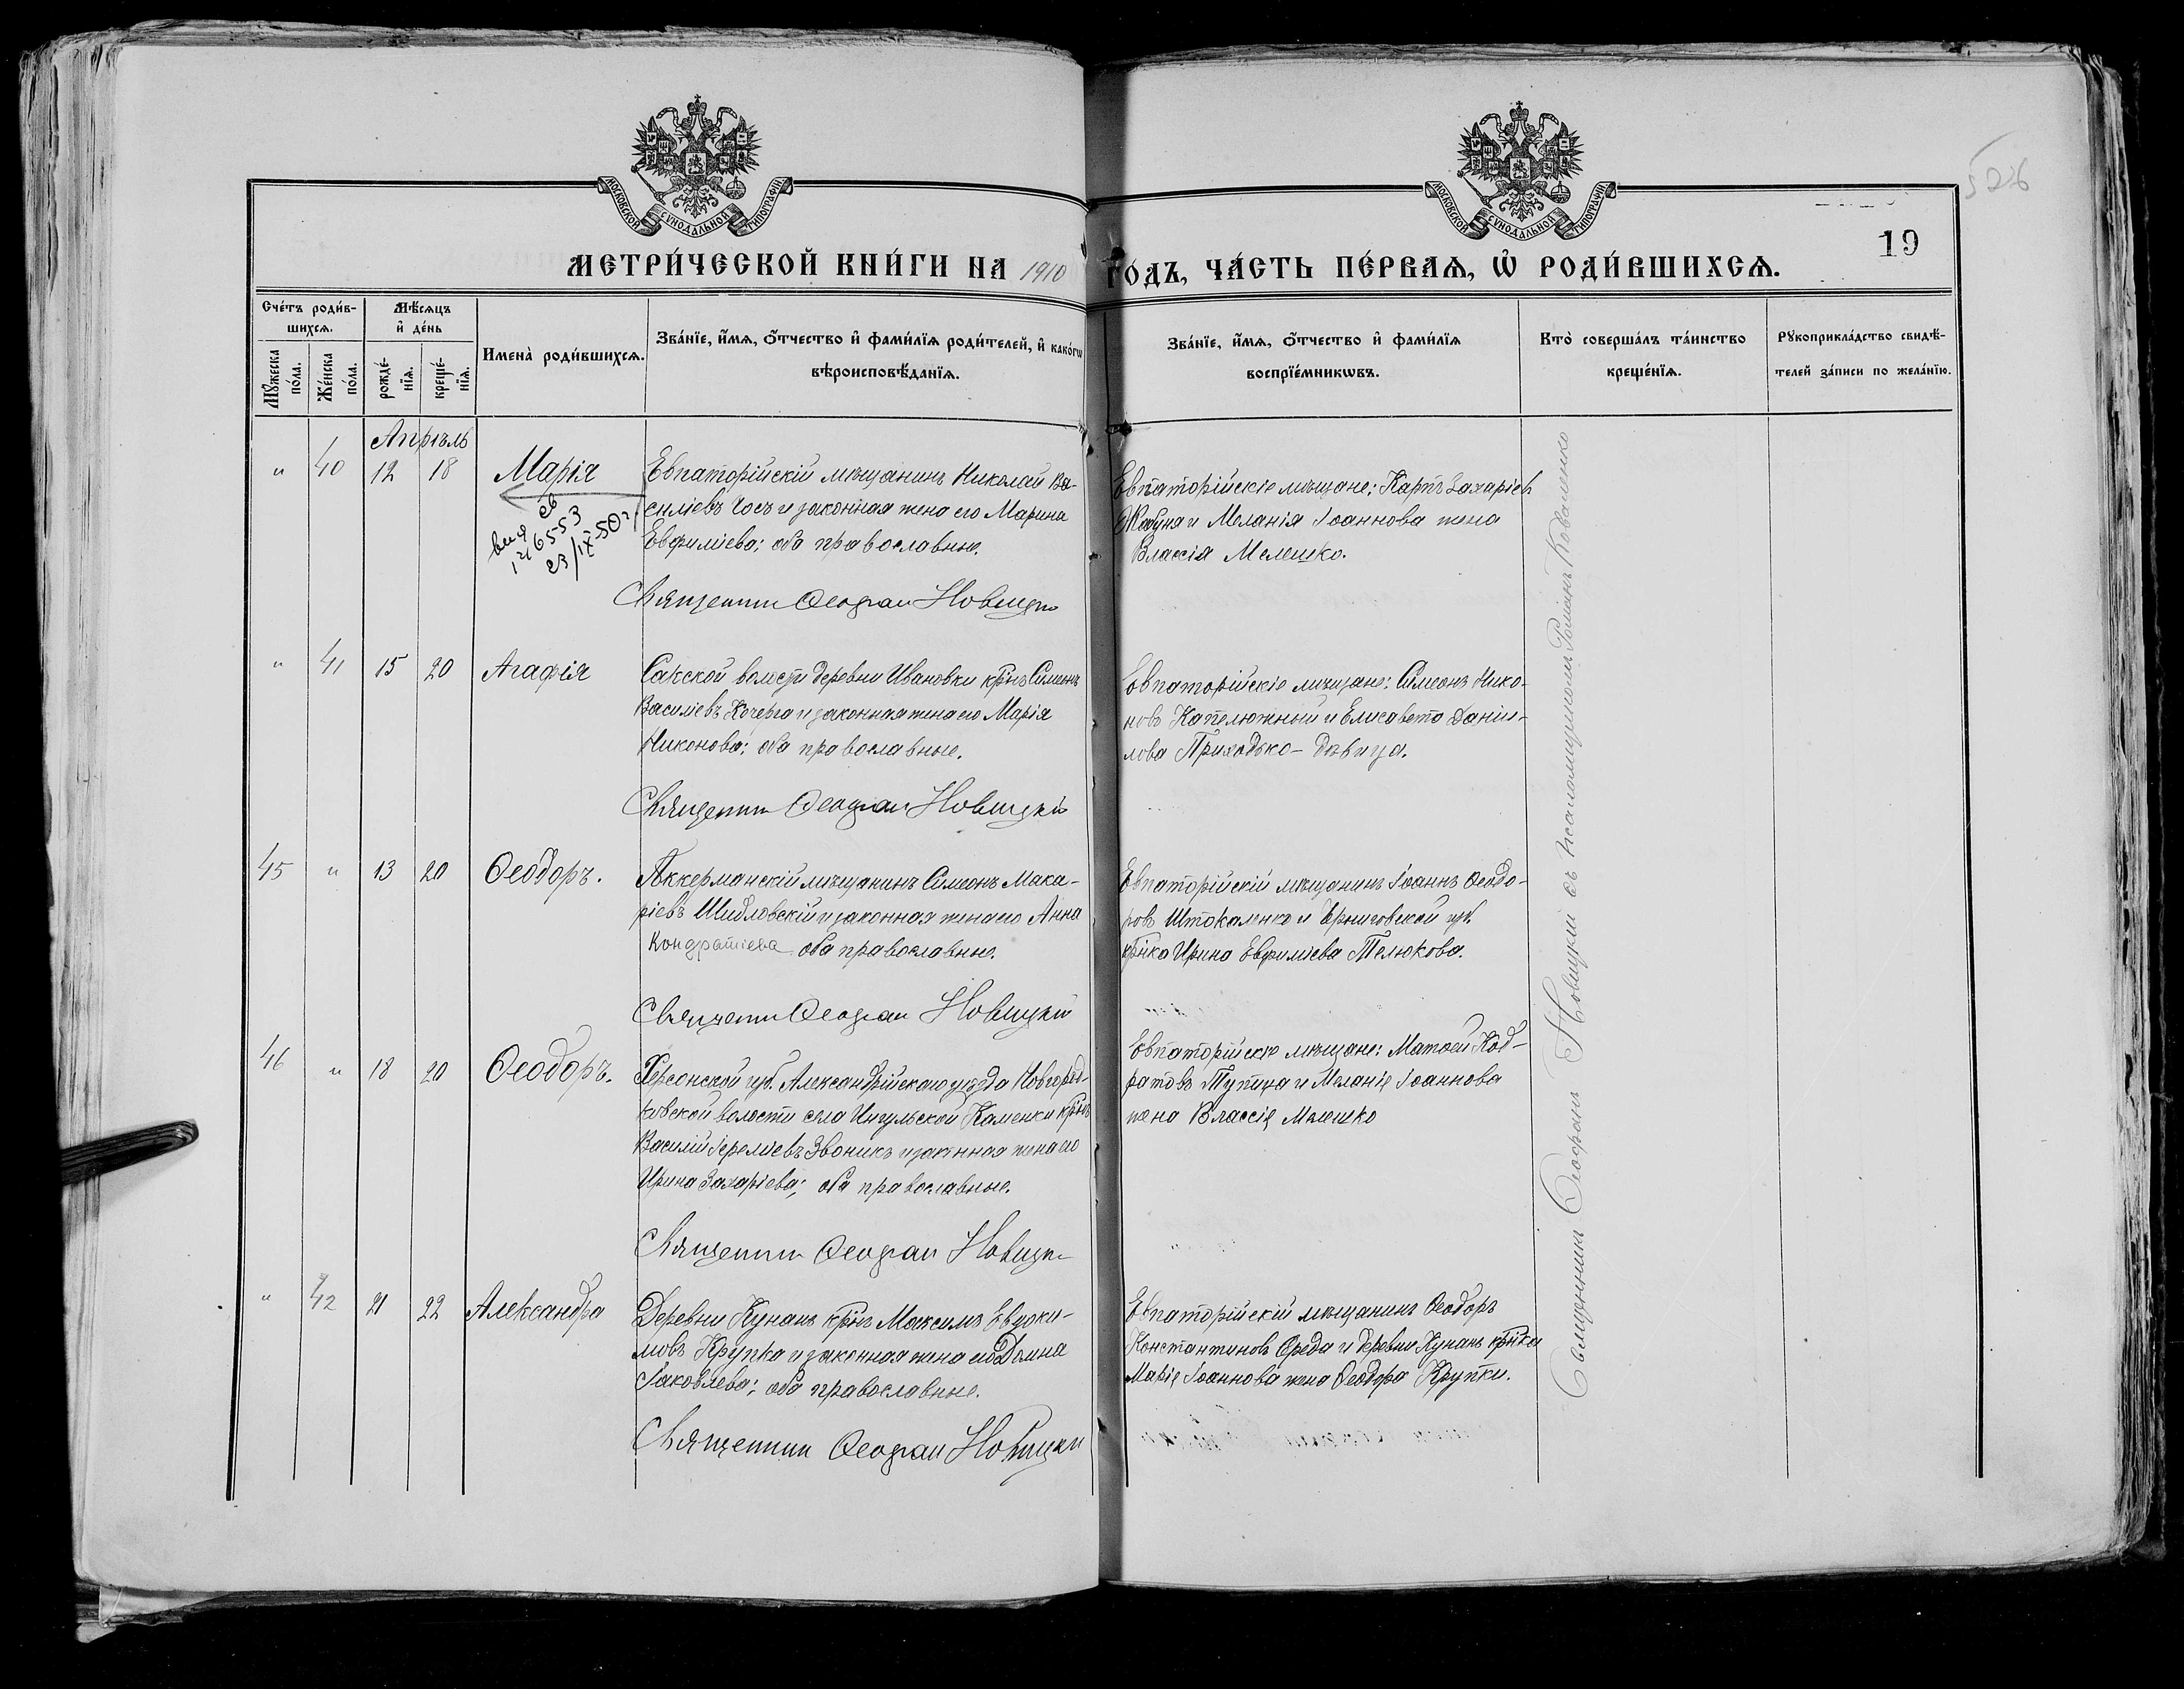 526
19
МОСКОВСКОЙ СУНОДАЛЬНОЙ ТИПОГРАФІИ
МОСКОВСКОЙ СУНОДАЛЬНОЙ ТИПОГРАФІИ
МЕТРИ́ЧЕСКОЙ КНИ́ГИ НА 1910 ГО́ДЪ, ЧА́СТЬ ПЕ́РВАѦ, Ѡ҆ РОДИ́ВШИХСѦ.
Сче́тъ роди́в-
шихсѧ.
Мꙋ́жеска по́ла.
Же́нска по́ла.
Мѣ́сѧцъ
и҆ де́нь
рожде́-
нїѧ.
креще́-
нїѧ.
Имена̀ роди́вшихсѧ.
Зва́нїе, и҆́мѧ, ѻ҆́тчество и҆ фами́лїѧ роди́телей, и҆ како́гѡ
вѣроисповѣ́данїѧ.
Зва́нїе, и҆́мѧ, ѻ҆́тчество и҆ фами́лїѧ
воспрїе́мникѡвъ.
Кто̀ соверша́лъ та́инство
креще́нїѧ.
Рꙋкоприкла́дство свидѣ́-
телей за́писи по жела́нїю.
Апрѣль
" 40 12 18 Марія
св
23/IX-50г
Евпаторійскій мѣщанинъ Николай Ва-
силіевъ Чосъ и законная жена его Марина
Евфиміева; оба православные.
Священник Ѳеофан Новицкій
Евпаторійскіе мѣщане: Карпъ Захаріевъ
и Меланія Іоаннова жена
Влассія Мелешко.
" 41 15 20 Агафія
Сакской волости деревни Ивановки крнъ Симеонъ
Василіевъ Кочерга и законная жена его Марія
Никонова; оба православные.
Священник Ѳеофан Новицкій
Евпаторійскіе мѣщане: Симеонъ Нико-
новъ Капелюжный и Елисавета Дани-
лова Приходько – дѣвица.
45 " 13 20 Ѳеодоръ.
Аккерманскій мѣщанинъ Симеонъ Мака-
ріевъ Шидловскій и законная жена его Анна
Кондратіева оба православные.
Священник Ѳеофан Новицкій
Евпаторійскій мѣщанинъ Іоаннъ Ѳеодо-
ровъ Штокаленко и Черниговской губ.
крнка Ирина Евфиміева Телюкова.
46 " 18 20 Ѳеодоръ.
Херсонской губ. Александрійскаго уѣзда Новгород-
ковской волости села Ингульской Каменки крнъ
Василій Іереміевъ Звоникъ и законная жена его
Ирина Захаріева; оба православные.
Священник Ѳеофан Новицкій
Евпаторійскіе мѣщане: Матѳей Код-
ратовъ Тупица и Меланія Іоаннова
жена Влассія Мелешко
" 42 21 22 Александра
Деревни Кунанъ крнъ Максимъ Евдоки-
мовъ Крупка и законная жена его Домна
Іаковлева; оба православные.
Священник Ѳеофан Новицкій
Евпаторійскій мѣщанинъ Ѳеодоръ
Константиновъ Середа и деревни Кунанъ крнка
Марія Іоаннова жена Ѳеодора Крупки.
Священникъ Ѳеофанъ Новицкій съ псаломщикомъ Романъ Коваленко